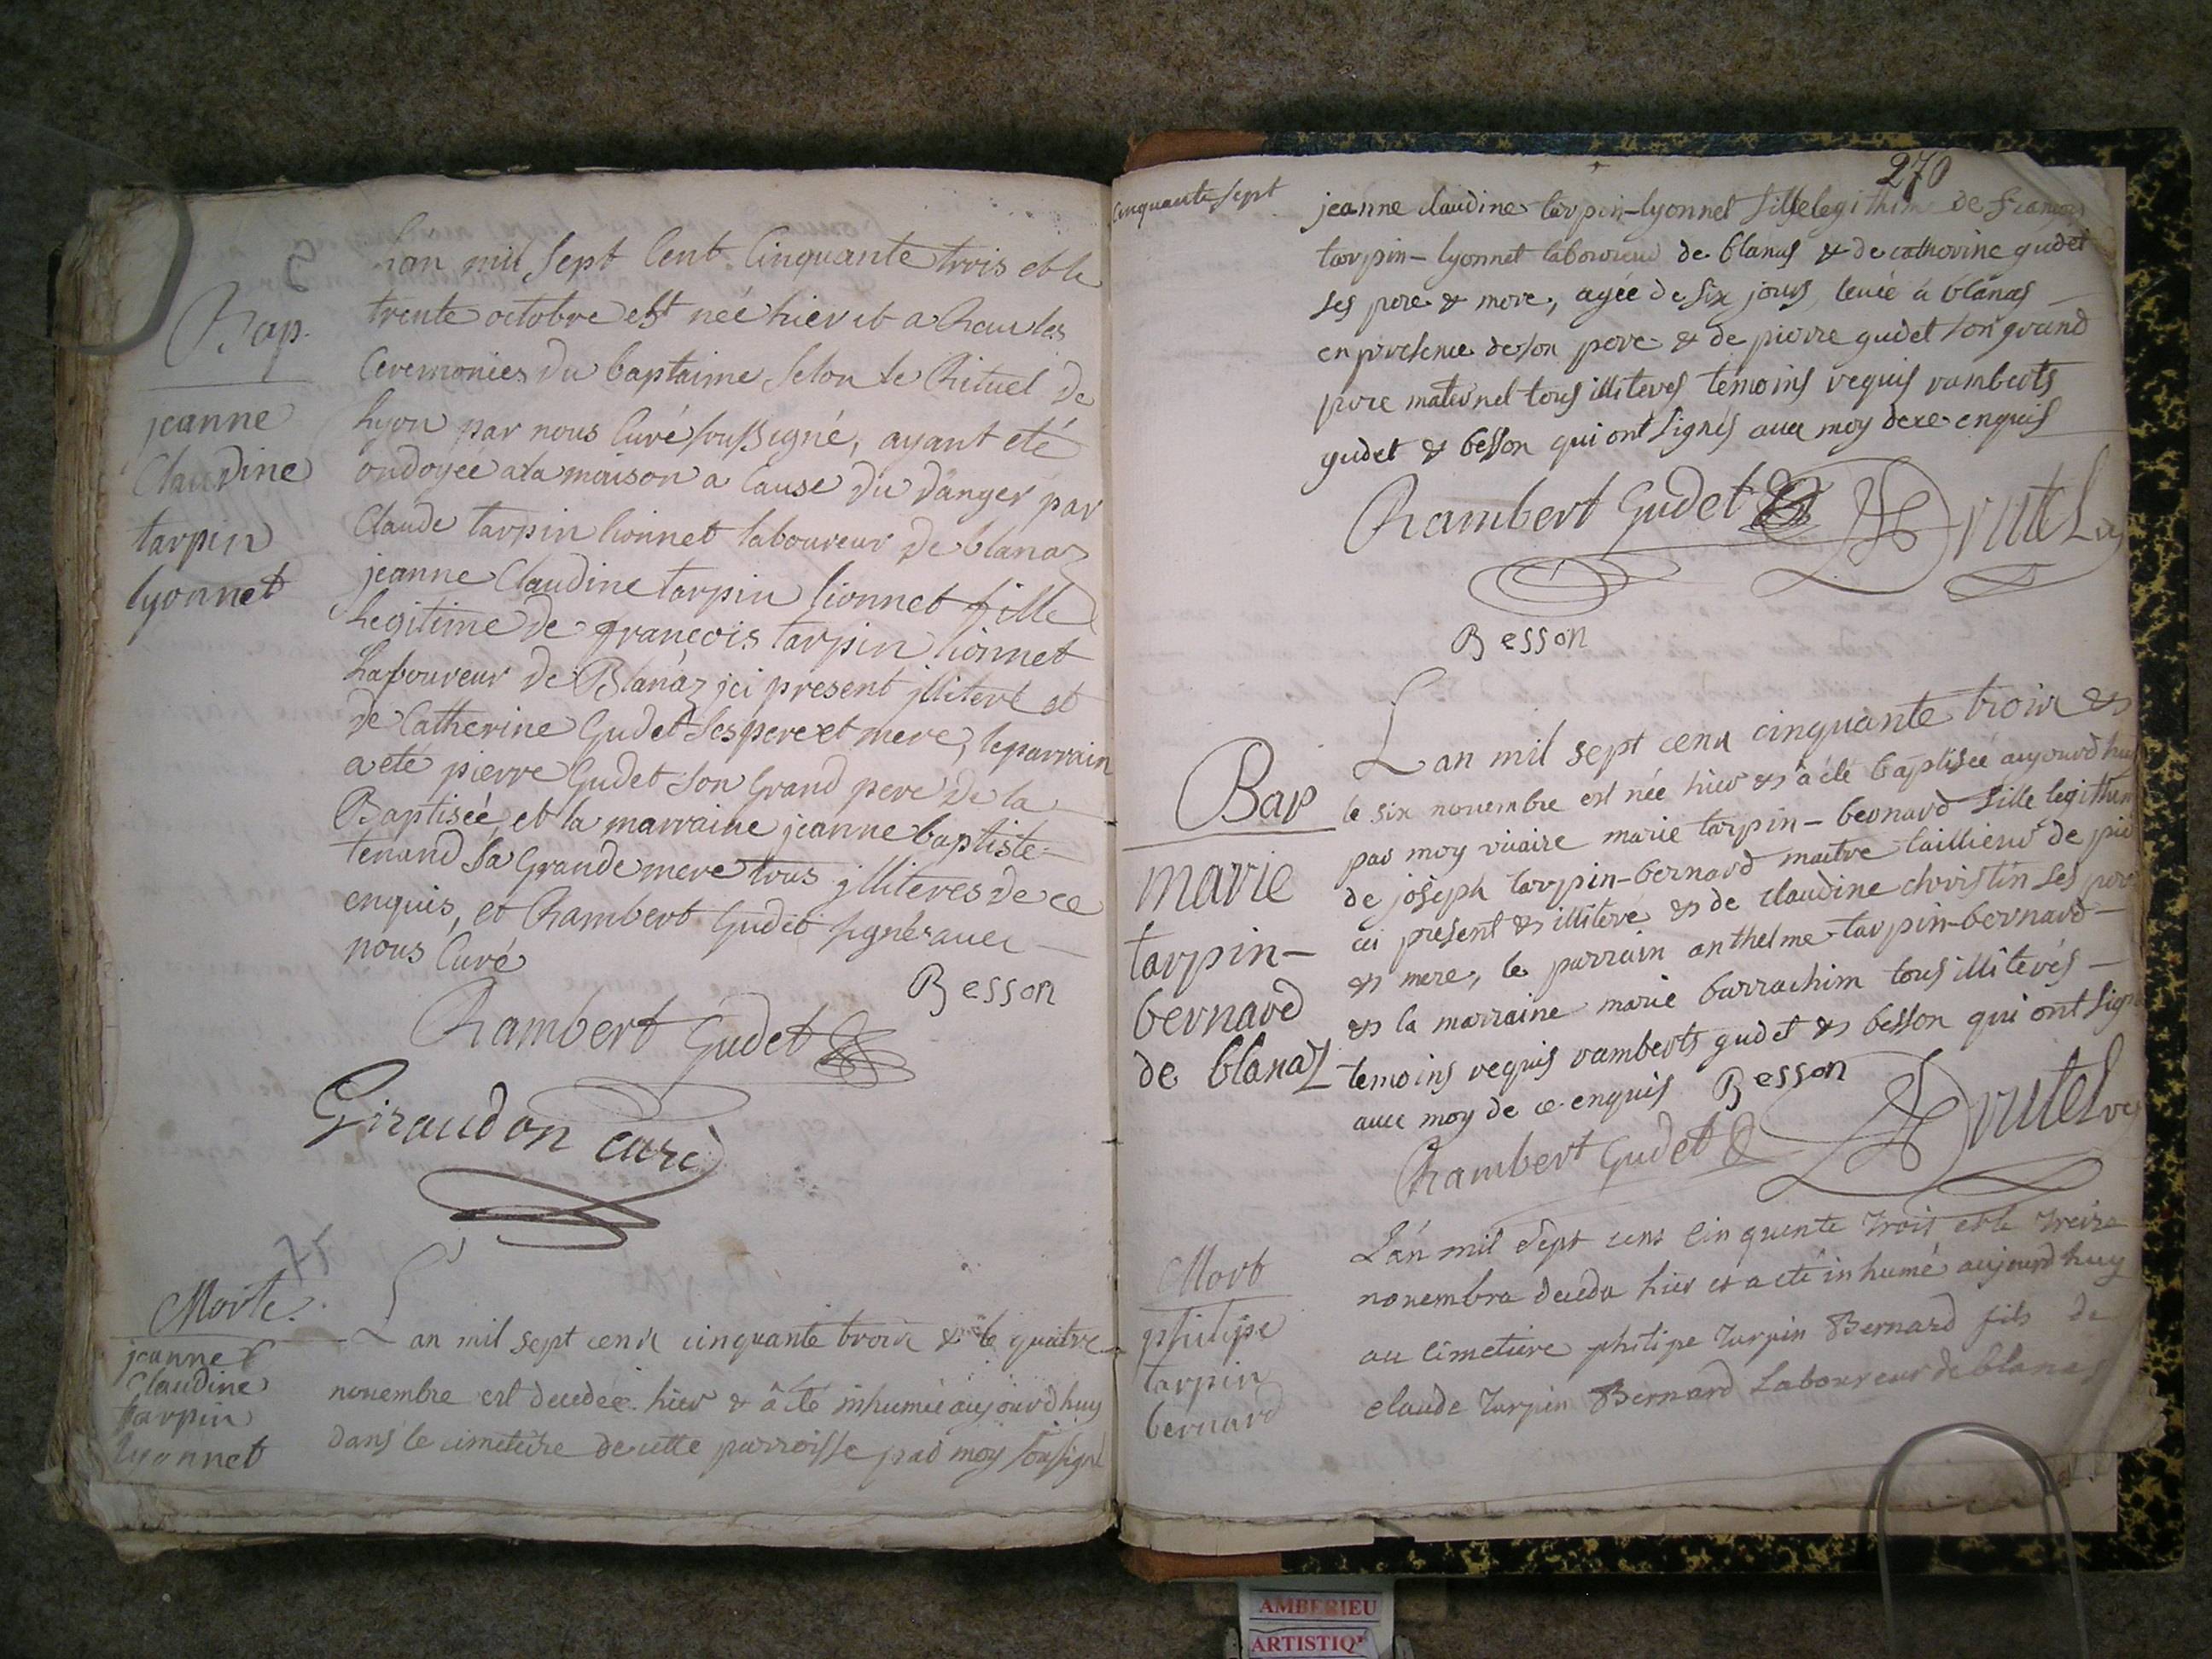 Bap.
jeanne
Claudine
tarpin
lyonnet
Lan mil Sept Cent Cinquante trois et le
trente octobre est neé hier et a Receu les
Ceremonies du baptaime selon le Rituel de
Lyon par nous Curé soussigné, ayant eté
ondoyée a la maison a Cause du danger par
Claude tarpin lionnet laboureur de blanaz
jeanne Claudine tarpin lionnet fille
Legitime de françois tarpin lionnet
Laboureur de Blanaz jci present jlliteré et
de Catherine Gudet ses pere et mere, le parrain
a eté pierre Gudet son Grand pere de la
Baptiseé, et la marraine jeanne baptiste
tenand sa Grande mere tous jlliteres de ce
enquis, et Rambert Gudet signés avec
nous Curé
Besson
Rambert Gudet
Giraudon curé
Morte.
jeanne
Claudine
tarpin
lyonnet
Lan mil sept cent cinquante trois & le quatre
novembre est decedeé hier & a été inhumée aujourdhuy
dans le cimetiere de cette parroisse par moy soussigné
270
Cinquante sept
jeanne claudine tarpin-lyonnet fille legithime de François
tarpin-lyonnet laboureur de blanas & de catherine gudet
ses pere & mere, agée de six jours, levée a blanas
en presence de son pere & de pierre gudet son grand
pere maternel tous illiterés temoins requis ramberts
gudet & besson qui ont signés avec moy de ce enquis
Rambert Gudet
Besson
Bap
marie
tarpin-
bernard
de blanaz
Lan mil sept cent cinquante trois &
le six novembre est née hier & a été baptisée aujourdhuy
par moy vicaire marie tarpin-bernard fille legithime
de joseph tarpin-bernard maitre taillieur de
ci present & illiteré & de claudine christin ses pere
& mere, le parrain anthelme tarpin-bernard
& la marraine marie barrachim tous illiterés
temoins requis ramberts gudet & besson qui ont signé
avec moy de ce enquis Besson
Rambert Gudet
Mort
philipe
tarpin
bernard
L'an mil Sept cens Cinquente Trois et le Treize
novembre decedа hier et a eté inhumé aujourdhuy
au Cimetiere philipe Tarpin Bernard fils de
claude Tarpin Bernard Laboureur de blanas
AMBERIEU
ARTISTIQ